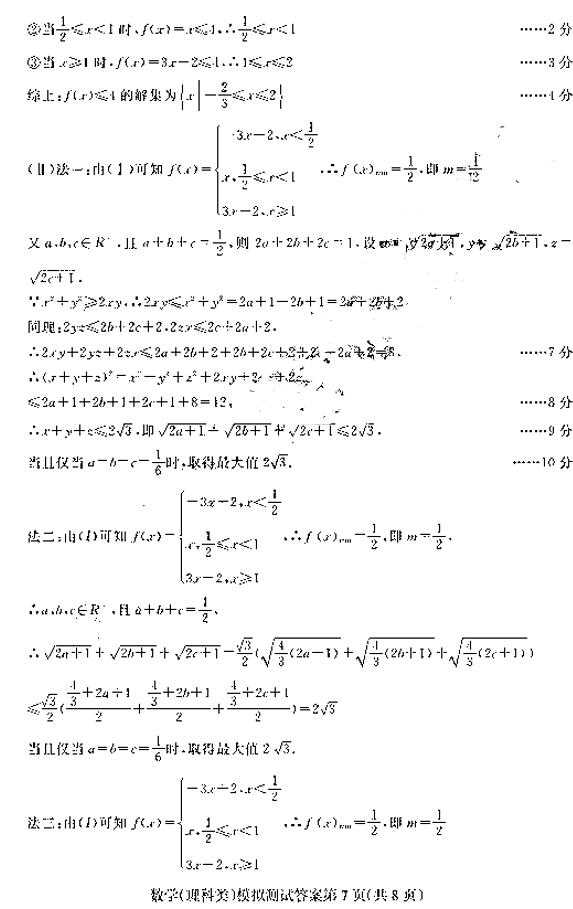 ②当1/2≤x<1时,f(x)=x≤4,∴1/2≤x<1 ……2分
③当x≥1时,f(x)=3x-2≤4,∴1≤x≤2 ……3分
综上:f(x)≤4的解集为{x|-2/3≤x≤2} ……4分
(Ⅱ)法一:由(Ⅰ)可知f(x)={-3x+2,x<1/2 x,1/2≤x<1 3x-2,x≥1 ,∴f(x)min=1/2,即m=1/2
又a,b,c∈R+,且a+b+c=1/2,则2a+2b+2c=1,设 y= √2b+1,z=
√2c+1.
∵x²+y²≥2xy,∴2xy≤x²+y²=2a+1+2b+1=2a+2b+2
同理:2yz≤2b+2c+2,2zx≤2c+2a+2.
∴2xy+2yz+2zx≤2a+2b+2+2b+2c+2+2c+2a+2=8. ……7分
∴(x+y+z)²=x²+y²+z²+2xy+2yz+2zx
≤2a+1+2b+1+2c+1+8=12, ……8分
∴x+y+z≤2√3,即√2a+1+√2b+1+√2c+1≤2√3. ……9分
当且仅当a=b=c=1/6时,取得最大值2√3. ……10分
法二:由(Ⅰ)可知f(x)={-3x+2,x<1/2 x,1/2≤x<1 3x-2,x≥1 ,∴f(x)min=1/2,即m=1/2,
∴a,b,c∈R+,且a+b+c=1/2,
∴√2a+1+√2b+1+√2c+1=√3/2(√4/3(2a+1)+√4/3(2b+1)+√4/3(2c+1))
≤√3/2((4/3+2a+1)/2+(4/3+2b+1)/2+(4/3+2c+1)/2)=2√3
当且仅当a=b=c=1/6时,取得最大值2√3.
法三:由(Ⅰ)可知f(x)={-3x+2,x<1/2 x,1/2≤x<1 3x-2,x≥1 ,∴f(x)min=1/2,即m=1/2
数学(理科类)模拟测试答案第7页(共8页)